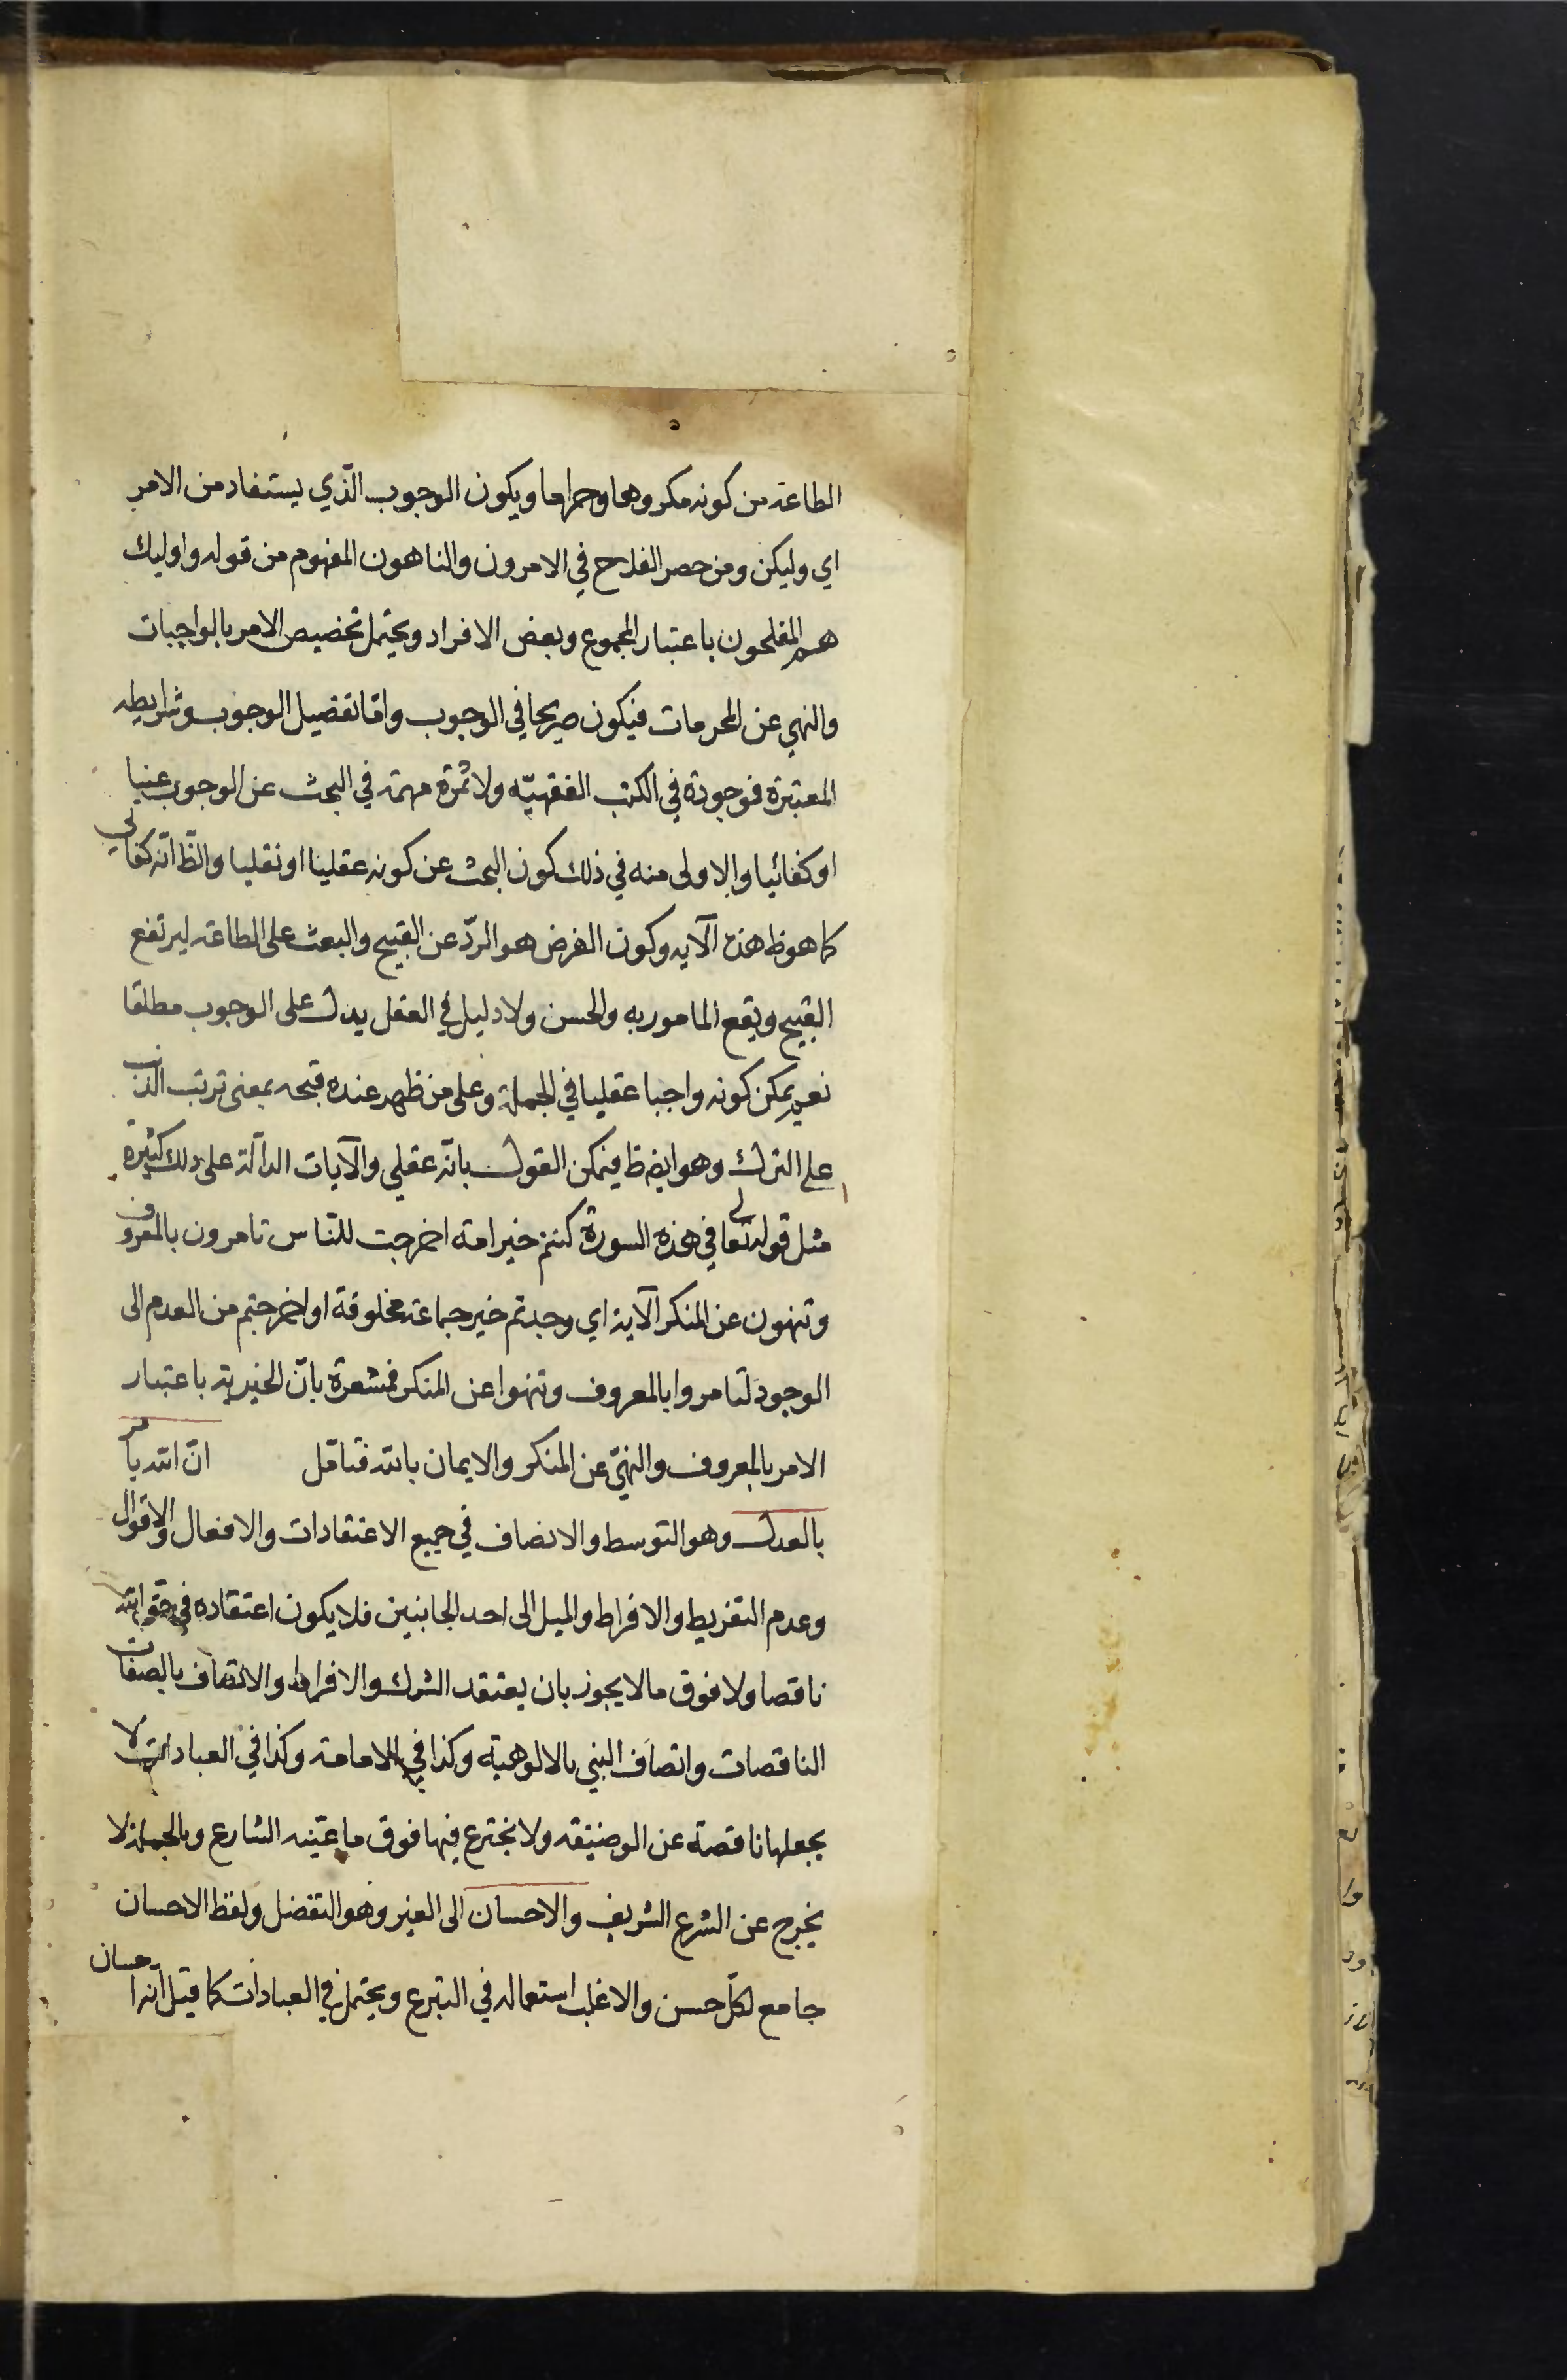 الطاعة من كونه مكروها وحراما ويكون الوجوب الّذي يستفاد من الامر
اي وليكن ومن حصر الفلاح في الامرون والناهون المفهوم من قوله واوليك
هم المفلحون باعتبار المجموع وبعض الافراد ويحتمل تخصيص الامر بالواجبات
والنهي عن المحرمات فيكون صريحا في الوجوب وامّا تفصيل الوجوب وشرايطه
المعتبرة فموجودة في الكتب الفقهيّه ولا ثمرة مهمة في البحث عن الوجوب عنيا
او كفائيا والاولى منه في ذلك كون البحث عن كونه عقلينا او نقليا والظّ انّه كفائي
كما هو ظ هذه الآيه وكون الغرض هو الردّ عن القبيح والبعث على الطاعة ليرتفع
القبيح ويقع المامور به والحسن ولا دليل في العقل يدل على الوجوب مطلقا
نعم يمكن كونه واجبا عقليا في الجملة وعلى من ظهر عنده قبحه بمعنى ترتب الذنب
على الترك وهو ايضا ظ فيمكن القول بانّه عقلي والآيات الدالّة على ذلك كثيرة
مثل قوله تعالى في هذه السورة كنتم خير امة اخرجت للنّاس تامرون بالمعروف
وتنهون عن المنكر الآية اي وجدتم خير جماعة مخلوقة او اخرجتم من العدم الى
الوجود لتامروا بالمعروف وتنهوا عن المنكر فمشعرة بانّ الخيرية باعتبار
الامر بالمعروف والنهيّ عن المنكر والايمان بالله فتامّل انّ الله يامر
بالعدل وهو التوسط والانصاف في جميع الاعتقادات والافعال والاقوال
وعدم التفريط والافراط والميل الى احد الجانبين فلا يكون اعتقاده في حق الله
ناقصا ولا فوق ما لا يجوز بان يعتقد الشرك والافراط والاتصاف بالصفات
الناقصات واتصاف النبي بالالوهية وكذا في الامامة وكذا في العبادات لا
يجعلها ناقصة عن الوضيفه ولا يخترع فيها فوق ما عيّنه الشارع وبالجملة لا
يخرج عن الشرع الشريف والاحسان الى الغير وهو التفضل ولفظ الاحسان
جامع لكلّ حسن والاغلب استعماله في التبرع ويحتمل في العبادات كما قيل انه احسان